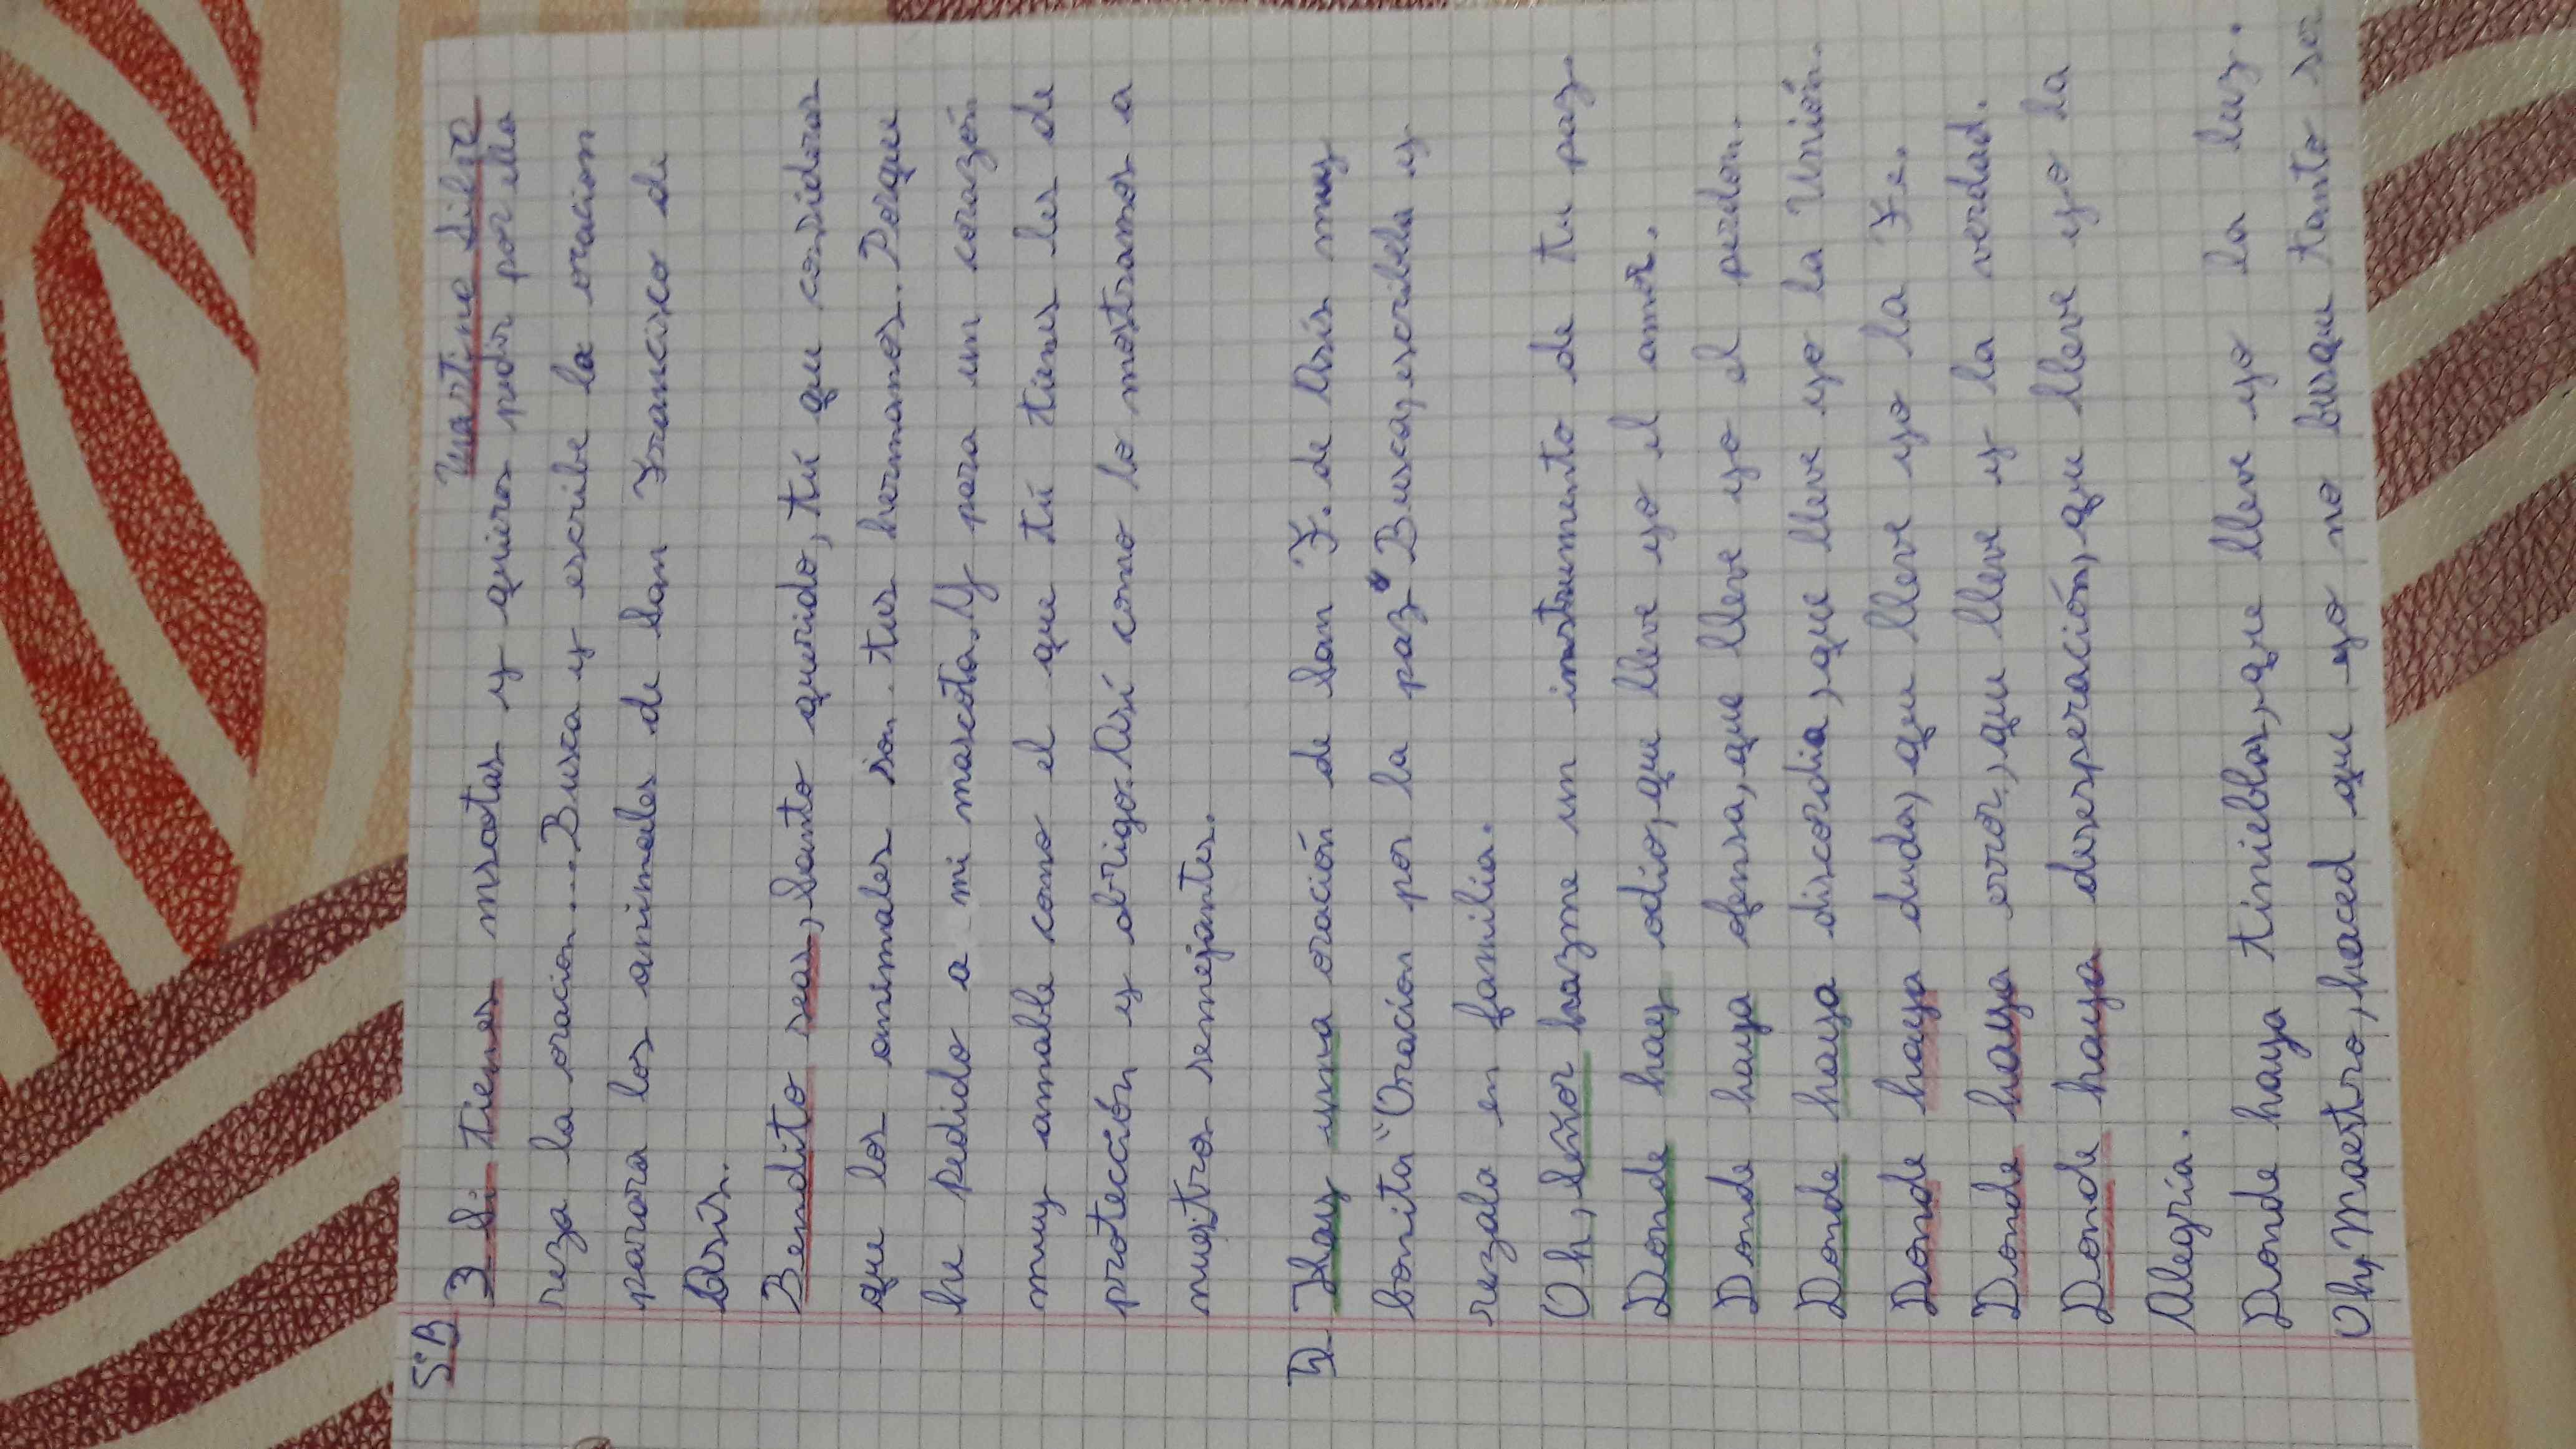 5ºB Martina Silva
3 Si tienes mscotas y quieres pedir por ella
reza la oracion.... Busca y escribe la oracion
parara los animales de San Francisco de
Asís.
Bendito seas, Santo querido, tú que consideras
que los animales son tus hermanos. Porque
he pedido a mi mascota. Y para un corazón
muy amable como el que tú tienes les de
protección y abrigo. Así como lo mostramos a
nuestros semejantes.
4. Hay unna oración de San F. de Asís muy
bonita "Oracion por la paz" Busca, escribela y
rezala en familia.
Oh, Señor hazme un instrumento de tu paz.
Donde hay odio, que lleve yo el amor.
Donde haya ofensa, que lleve yo el perdon.
Donde haya discordia, que lleve yo la Unión.
Donde haya duda, que lleve yo la Fe.
Donde haya error, que lleve y la verdad.
Donde haya desesperación, que lleve yo la
Alegría.
Donde haya tinieblas, que lleve yo la luz.
Oh, Maestro, haced que yo no busque tanto ser